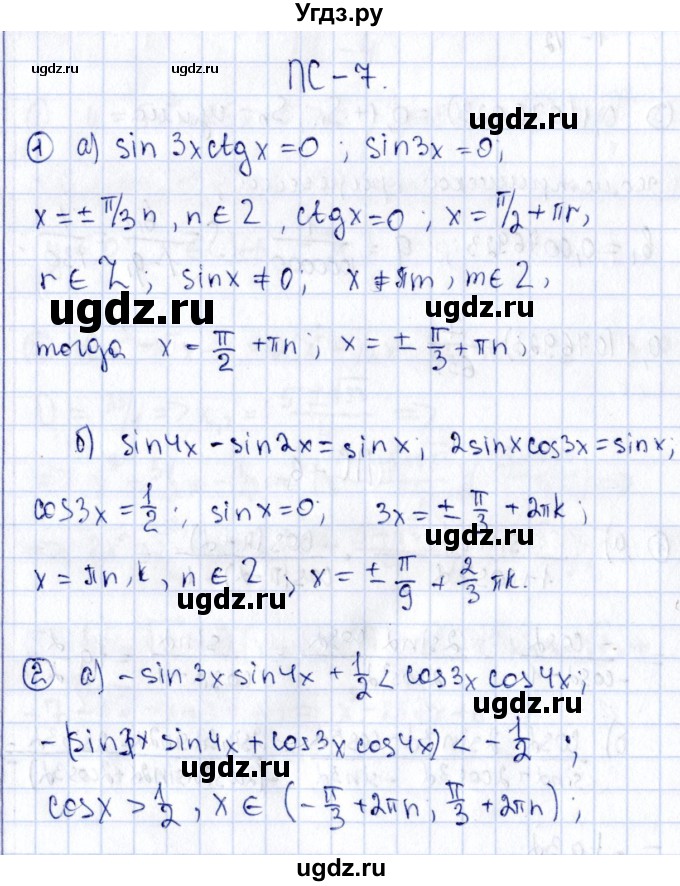 Угдз.ру
ПС - 7.
ugdz.ru ugdz.ru
① а) sin 3x ctg x = 0 ; sin3x = 0;
x = ± π/3 n , n ∈ Z , ctgx = 0 ; x = π/2 + πr,
r ∈ Z ; sinx ≠ 0; x ≠ πm , m ∈ Z ,
ugdz.ru ugdz.ru
тогда x = π/2 + πn ; x = ± π/3 + πn ,
б) sin4x - sin2x = sin x ; 2sinx cos3x = sinx;
cos3x = 1/2 ; sinx = 0; 3x = ± π/3 + 2πk ;
ugdz.ru
x = πn, k , n ∈ Z , x = ± π/9 + 2/3 πk.
ugdz.ru
② а) - sin 3x sin4x + 1/2 < cos3x cos4x;
ugdz.ru
- (sin3x sin4x + cos3x cos4x) < - 1/2 ;
ugdz.ru
cosx > 1/2 , x ∈ (- π/3 + 2πn , π/3 + 2πn) ;
ugdz.ru ugdz.ru
ugdz.ru